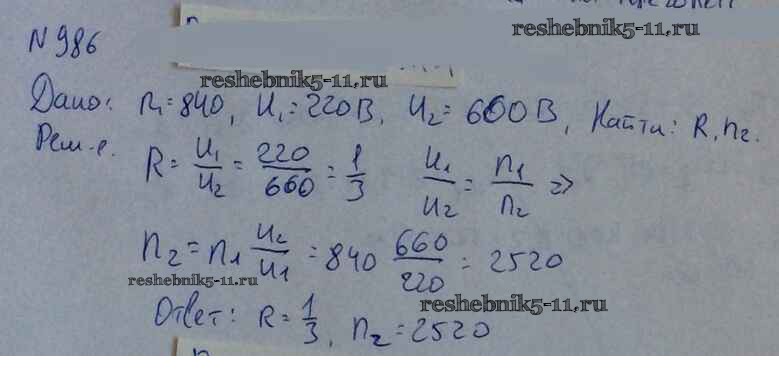 reshebnik5-11,ru
N 986
reshebnik5-11,ru
Дано: n₁=840, U₁=220В, U₂=660В, Найти: R, n₂.
Реш-е. R = U₁/U₂ = 220/660 = 1/3 U₁/U₂ = n₁/n₂ =>
n₂ = n₁ U₂/U₁ = 840 660/220 = 2520
reshebnik5-11,ru
reshebnik5-11,ru
Ответ: R = 1/3, n₂ = 2520